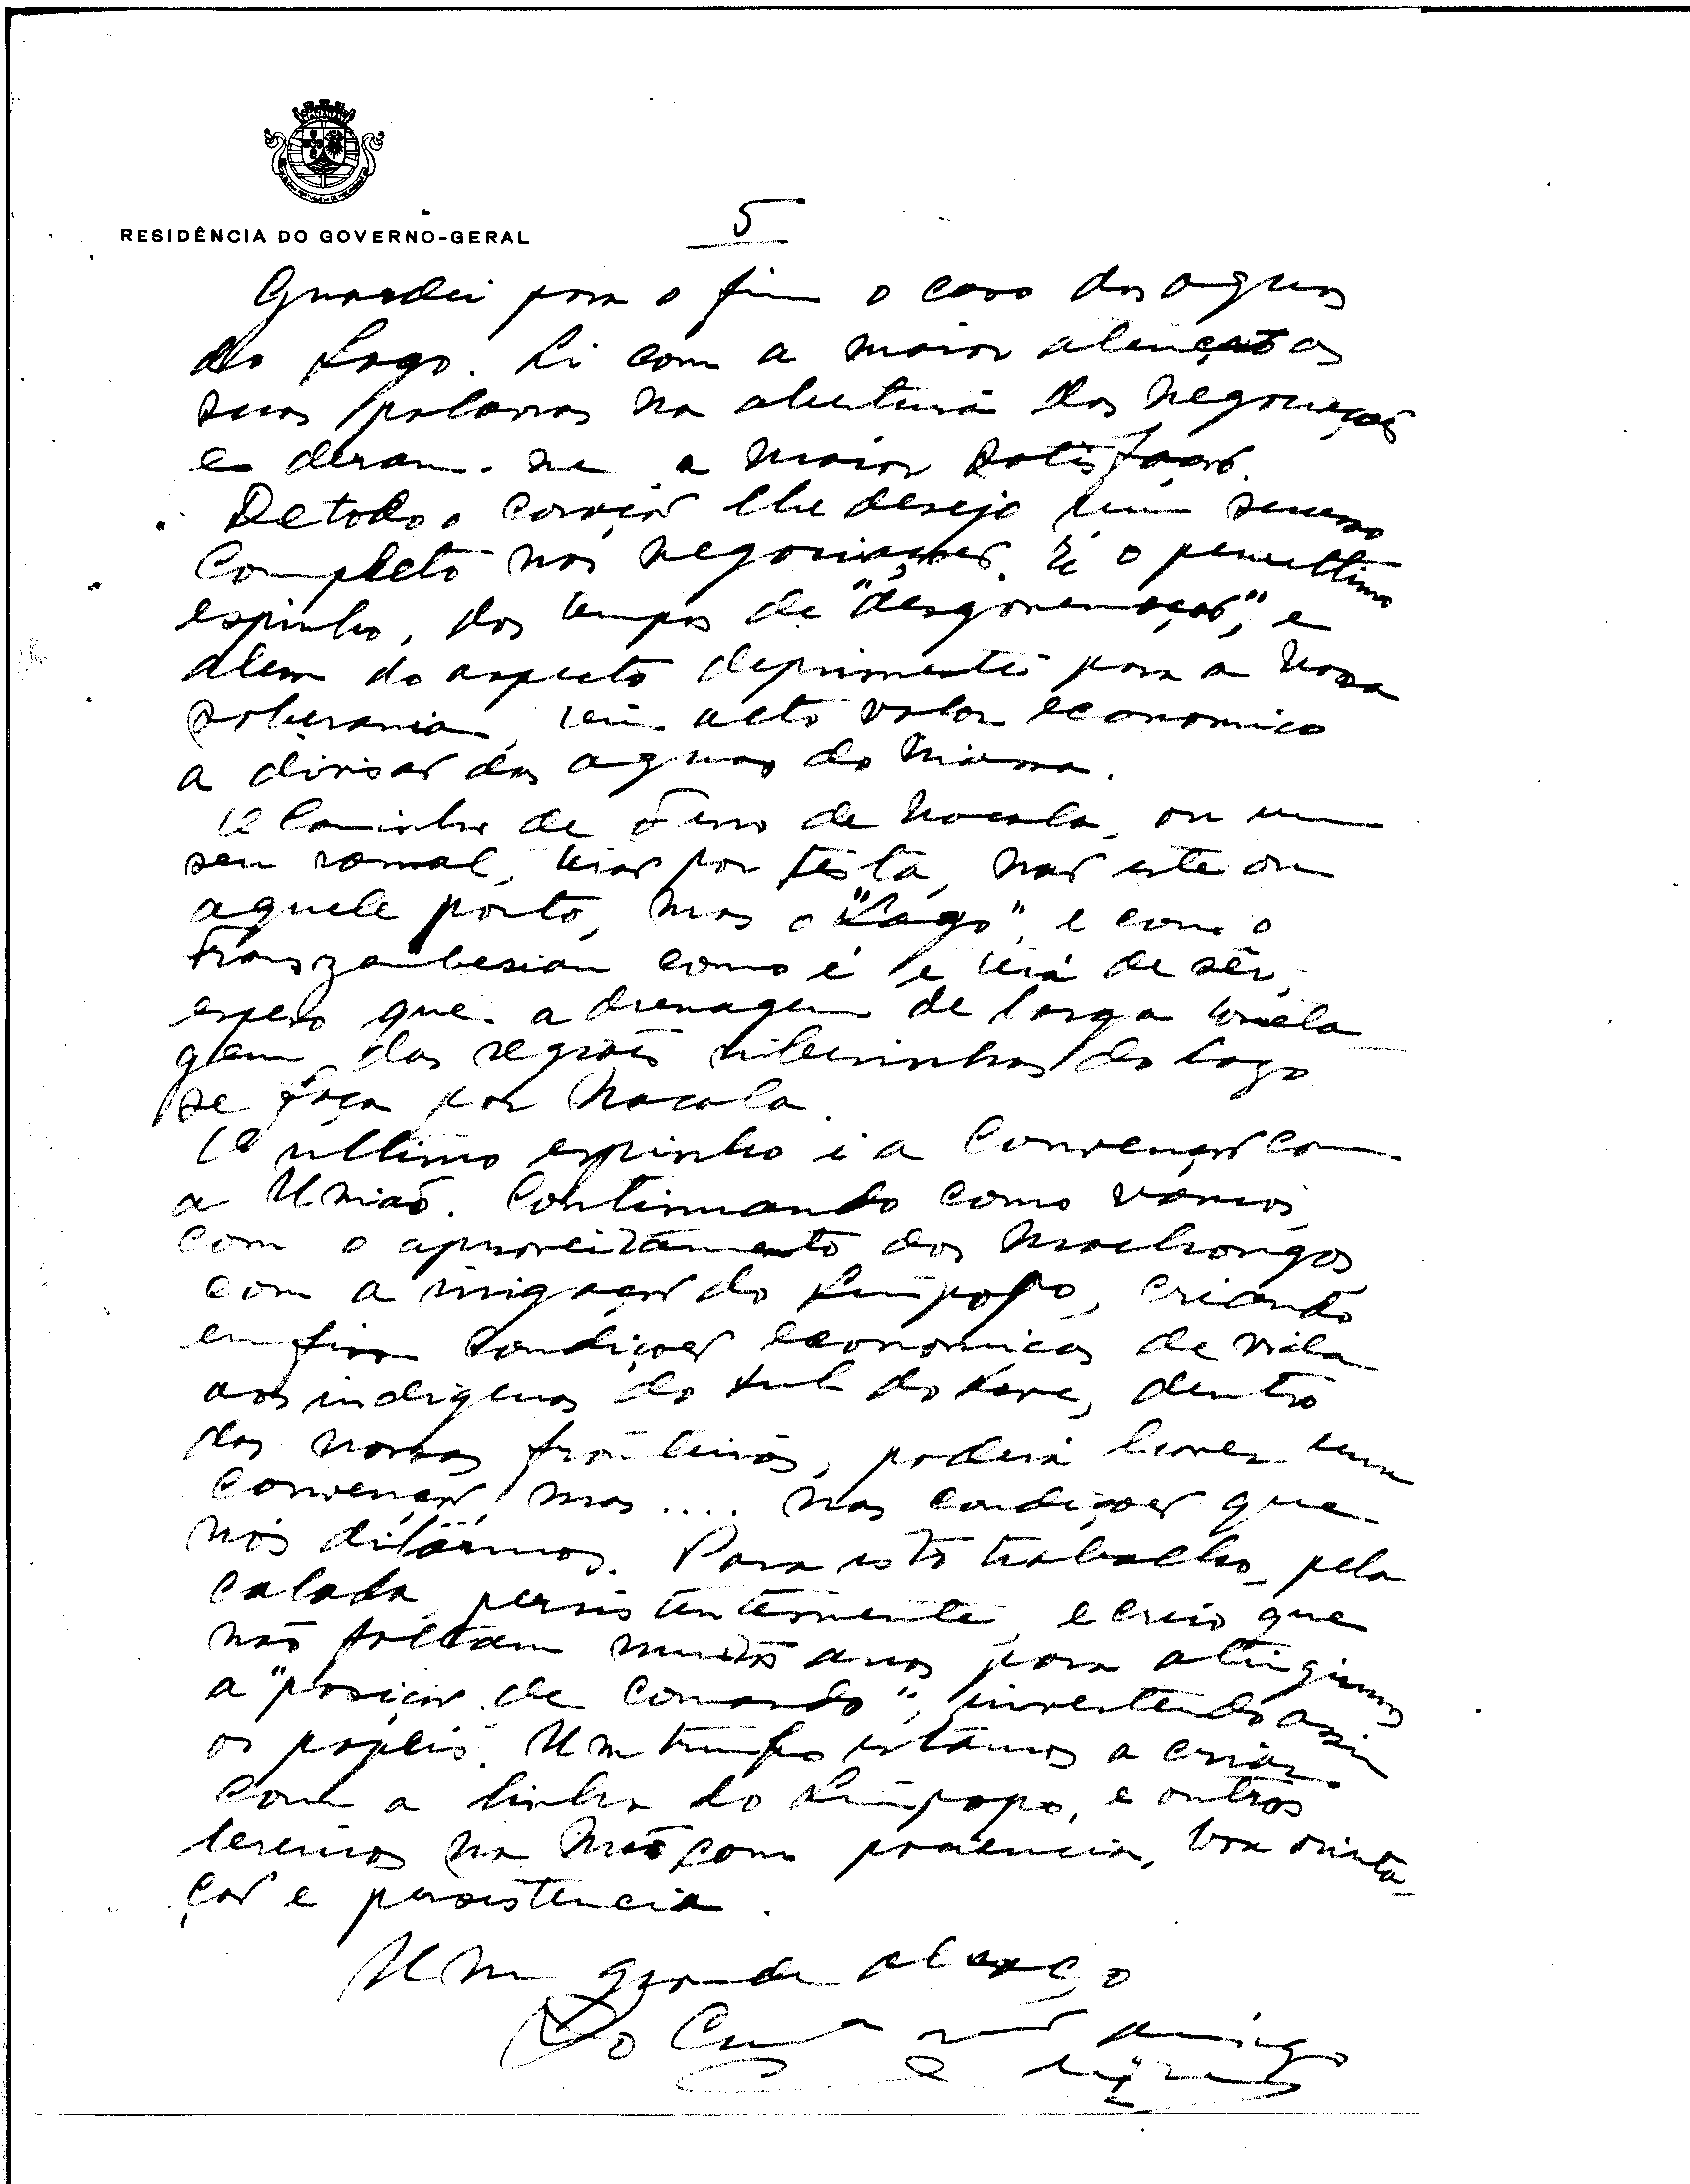 RESIDÊNCIA DO GOVERNO-GERAL
5
Guardei para o fim o caso das aguas
do Lago. Li com a maior atenção as
suas palavras na abertura das negociações
e deram-me a maior satisfação.
De todo o coração lhe desejo um sucesso
completo nas negociações. É o penultimo
espinho, dos tempos de "desgovernação", e
alem do aspecto deprimente para a nossa
soberania, tem alto valor economico
a divisão das aguas do Niassa.
O Caminho de Ferro de Nacala, ou um
seu ramal, terão por testa, não este ou
aquele porto, mas o "Lago", e como
Transzambesian como é e terá de sêr,
espero que a drenagem de larga tonela
gem das regiões ribeirinhas do Lago
se faça por Nacala.
O ultimo espinho é a Convenção com
a União. Continuando como vamos,
com o aproveitamento dos Machongos
com a irrigação do Limpopo, criando
enfim condições economicas de vida
aos indigenas do sul do Save, dentro
das nossas fronteiras, poderá haver uma
convenção, mas .... nas condições que
nós ditarmos. Para isto trabalho, pela
calada, persistentemente, e creio que
não faltam muitos anos para atingirmos
a "posição de comando", invertendo assim
os papeis. Um trunfo estamos a criar
com a linha do Limpopo, e outros
teremos na mão com paciencia, boa orienta-
ção e persistencia.
Um grande abraço
Do amigo